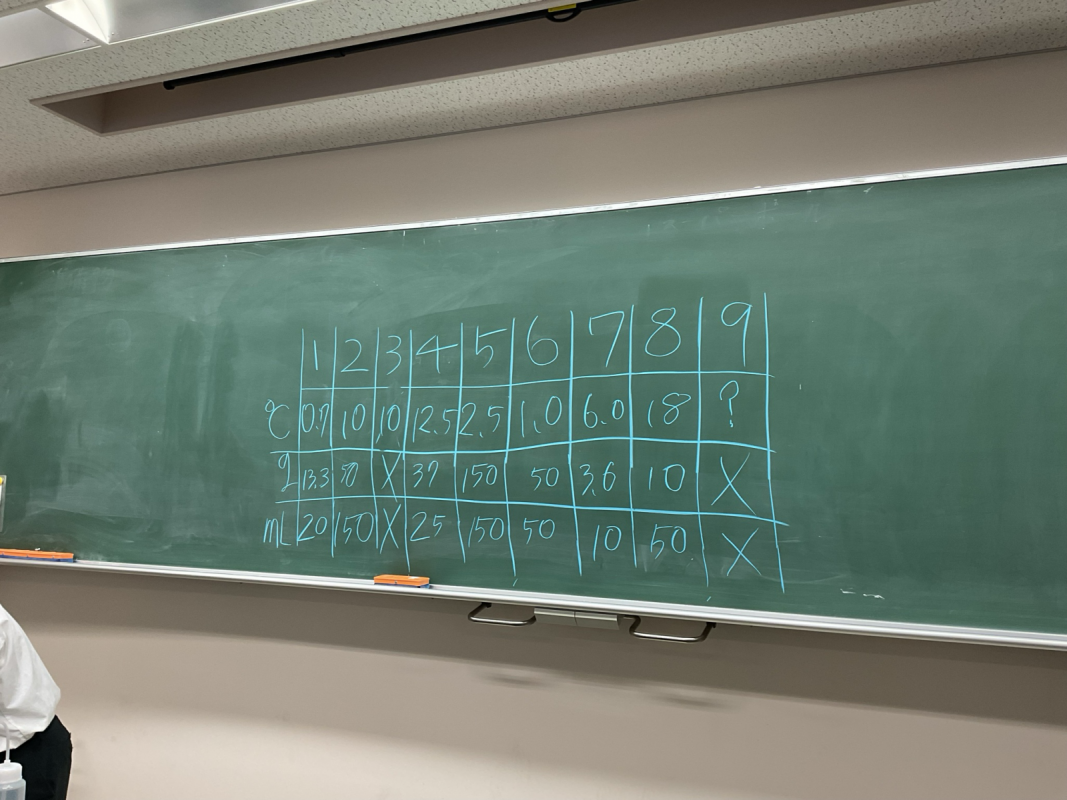 1 2 3 4 5 6 7 8 9
℃ 0.7 10 10 12.5 2.5 1.0 6.0 18 ?
g 13.3 50 X 37 150 50 3.6 10 X
mL 20 150 X 25 150 50 10 50 X